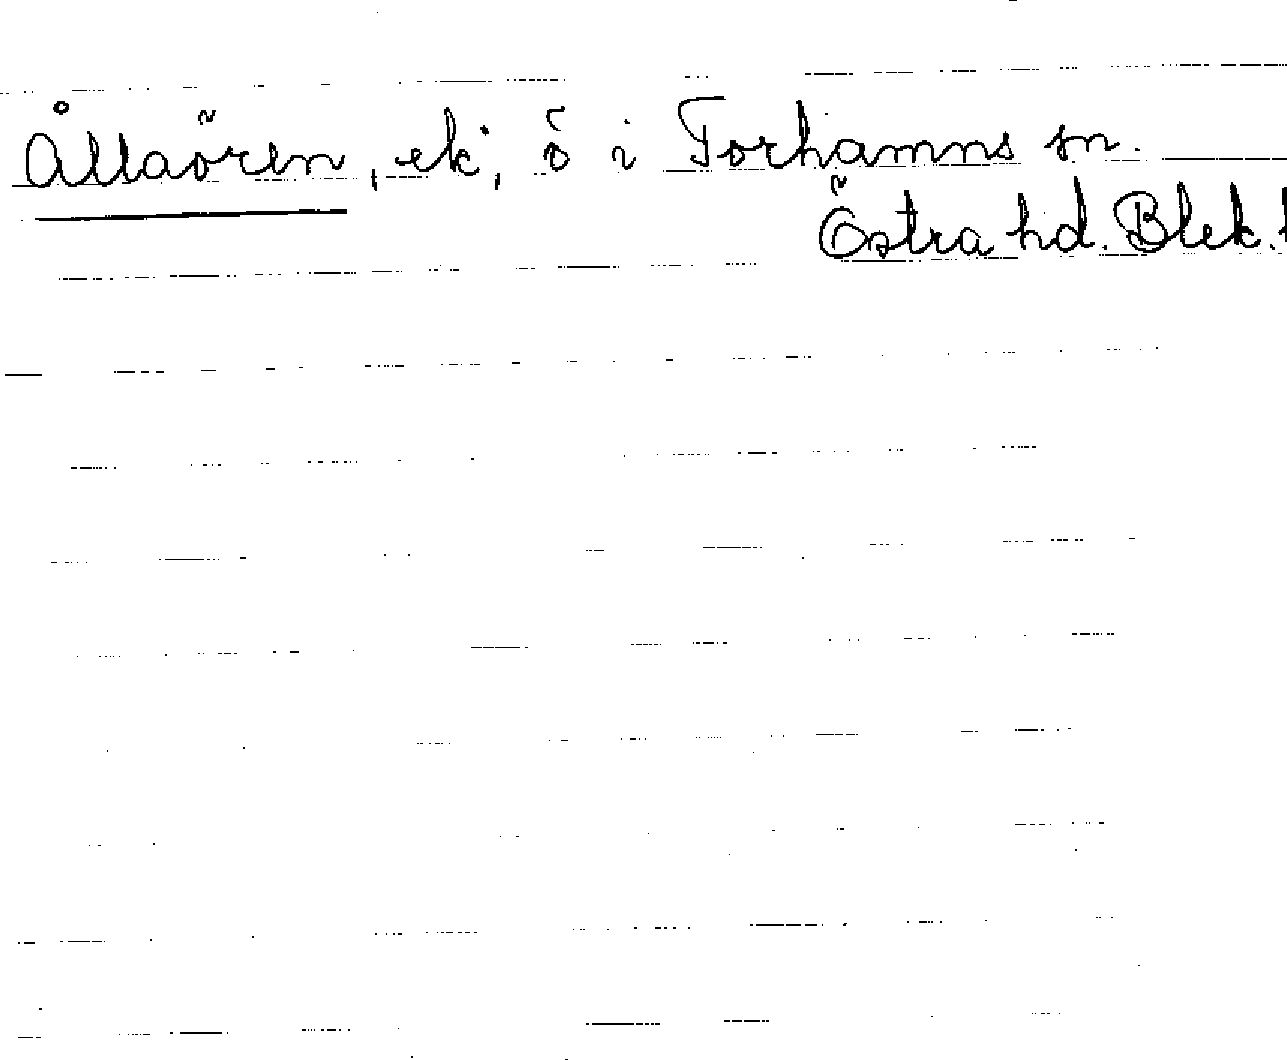 Ållaören, ek, ö i Torhamns sn.
Östra hd. Blek.